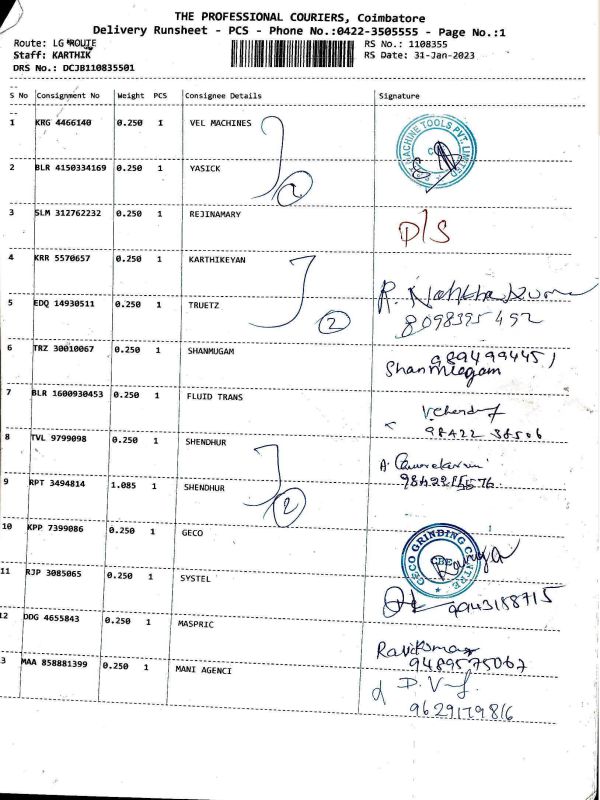 THE PROFESSIONAL COURIERS, Coimbatore
Delivery Runsheet - PCS - Phone No.:0422-3505555 - Page No.:1
Route: LG ROUTE RS No.: 1108355
Staff: KARTHIK RS Date: 31-Jan-2023
DRS No.: DCJB110835501
S No Consignment No Weight PCS Consignee Details Signature
1 KRG 4466140 0.250 1 VEL MACHINES
MACHINE TOOLS PVT. LIMITED
2 BLR 4150334169 0.250 1 YASICK
2
3 SLM 312762232 0.250 1 REJINAMARY
D/S
4 KRR 5570657 0.250 1 KARTHIKEYAN
5 EDQ 14930511 0.250 1 TRUETZ
2
8098395492
6 TRZ 30010067 0.250 1 SHANMUGAM
9894994451
Shanmugam
7 BLR 1600930453 0.250 1 FLUID TRANS
98422 38506
8 TVL 9799098 0.250 1 SHENDHUR
9 RPT 3494814 1.085 1 SHENDHUR
2
10 KPP 7399086 0.250 1 GECO
GECO GRINDING CENTRE
CBE
11 RJP 3085065 0.250 1 SYSTEL
9943158715
12 DDG 4655843 0.250 1 MASPRIC
Ravikumar
9489575067
13 MAA 858881399 0.250 1 MANI AGENCI
9629179816